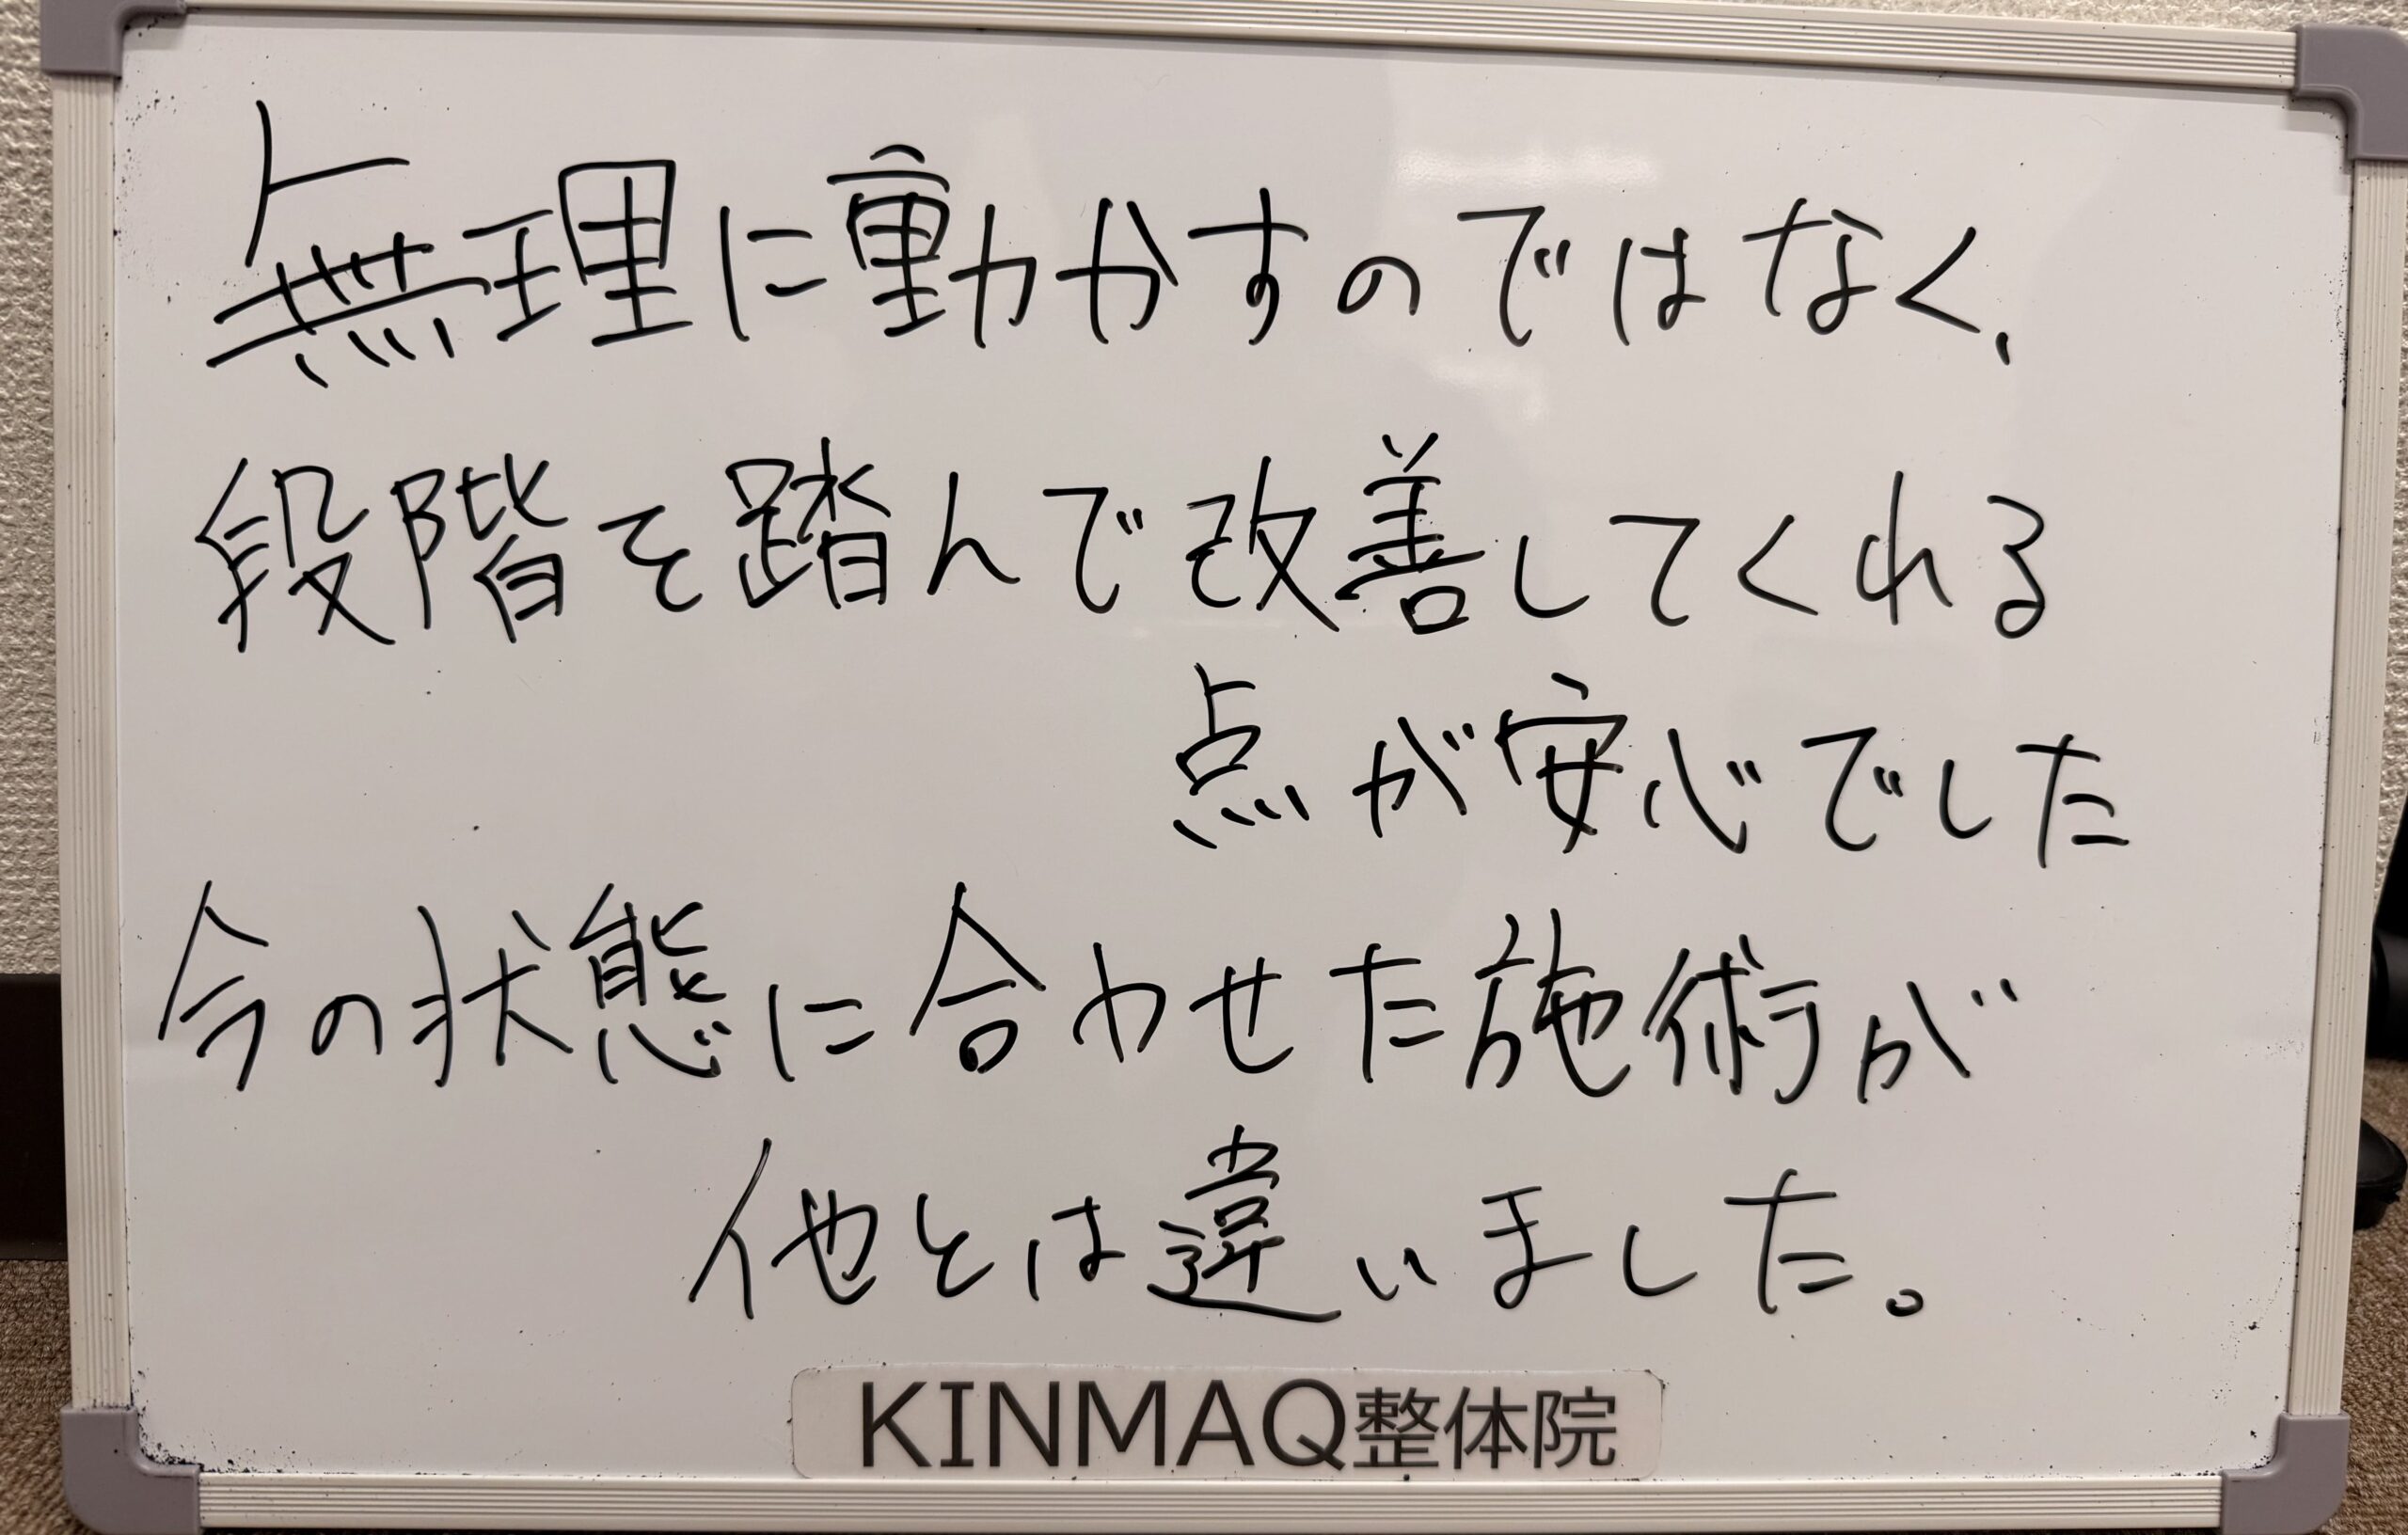 無理に動かすのではなく、
段階を踏んで改善してくれる
点が安心でした
今の状態に合わせた施術が
他とは違いました。
KINMAQ整体院